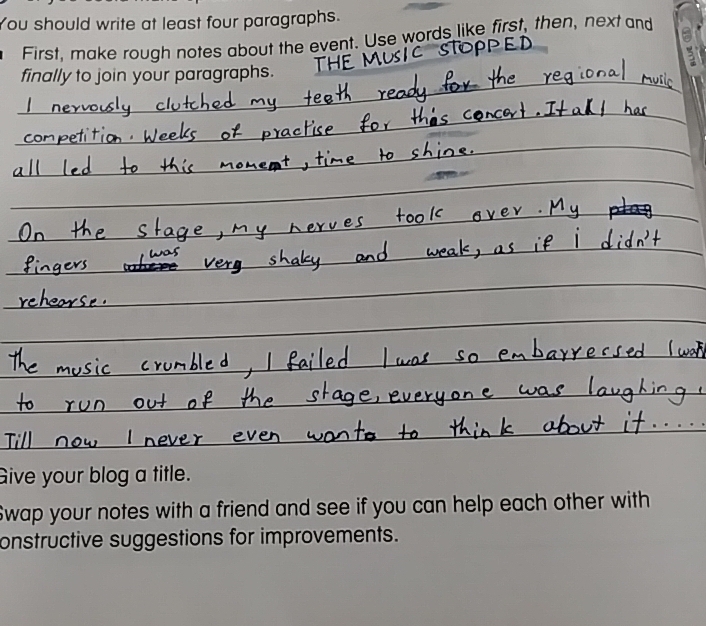 You should write at least four paragraphs.
First, make rough notes about the event. Use words like first, then, next and
finally to join your paragraphs. THE MUSIC STOPPED
I nervously clutched my teeth ready for the regional music
competition. Weeks of practise for this concert. It all has
all led to this moment, time to shine.
On the stage, my nerves took over. My
fingers was very shaky and weak, as if i didn't
rehearse.
The music crumbled, I failed I was so embarressed I want
to run out of the stage, everyone was laughing.
Till now I never even want to to think about it.....
Give your blog a title.
Swap your notes with a friend and see if you can help each other with
onstructive suggestions for improvements.